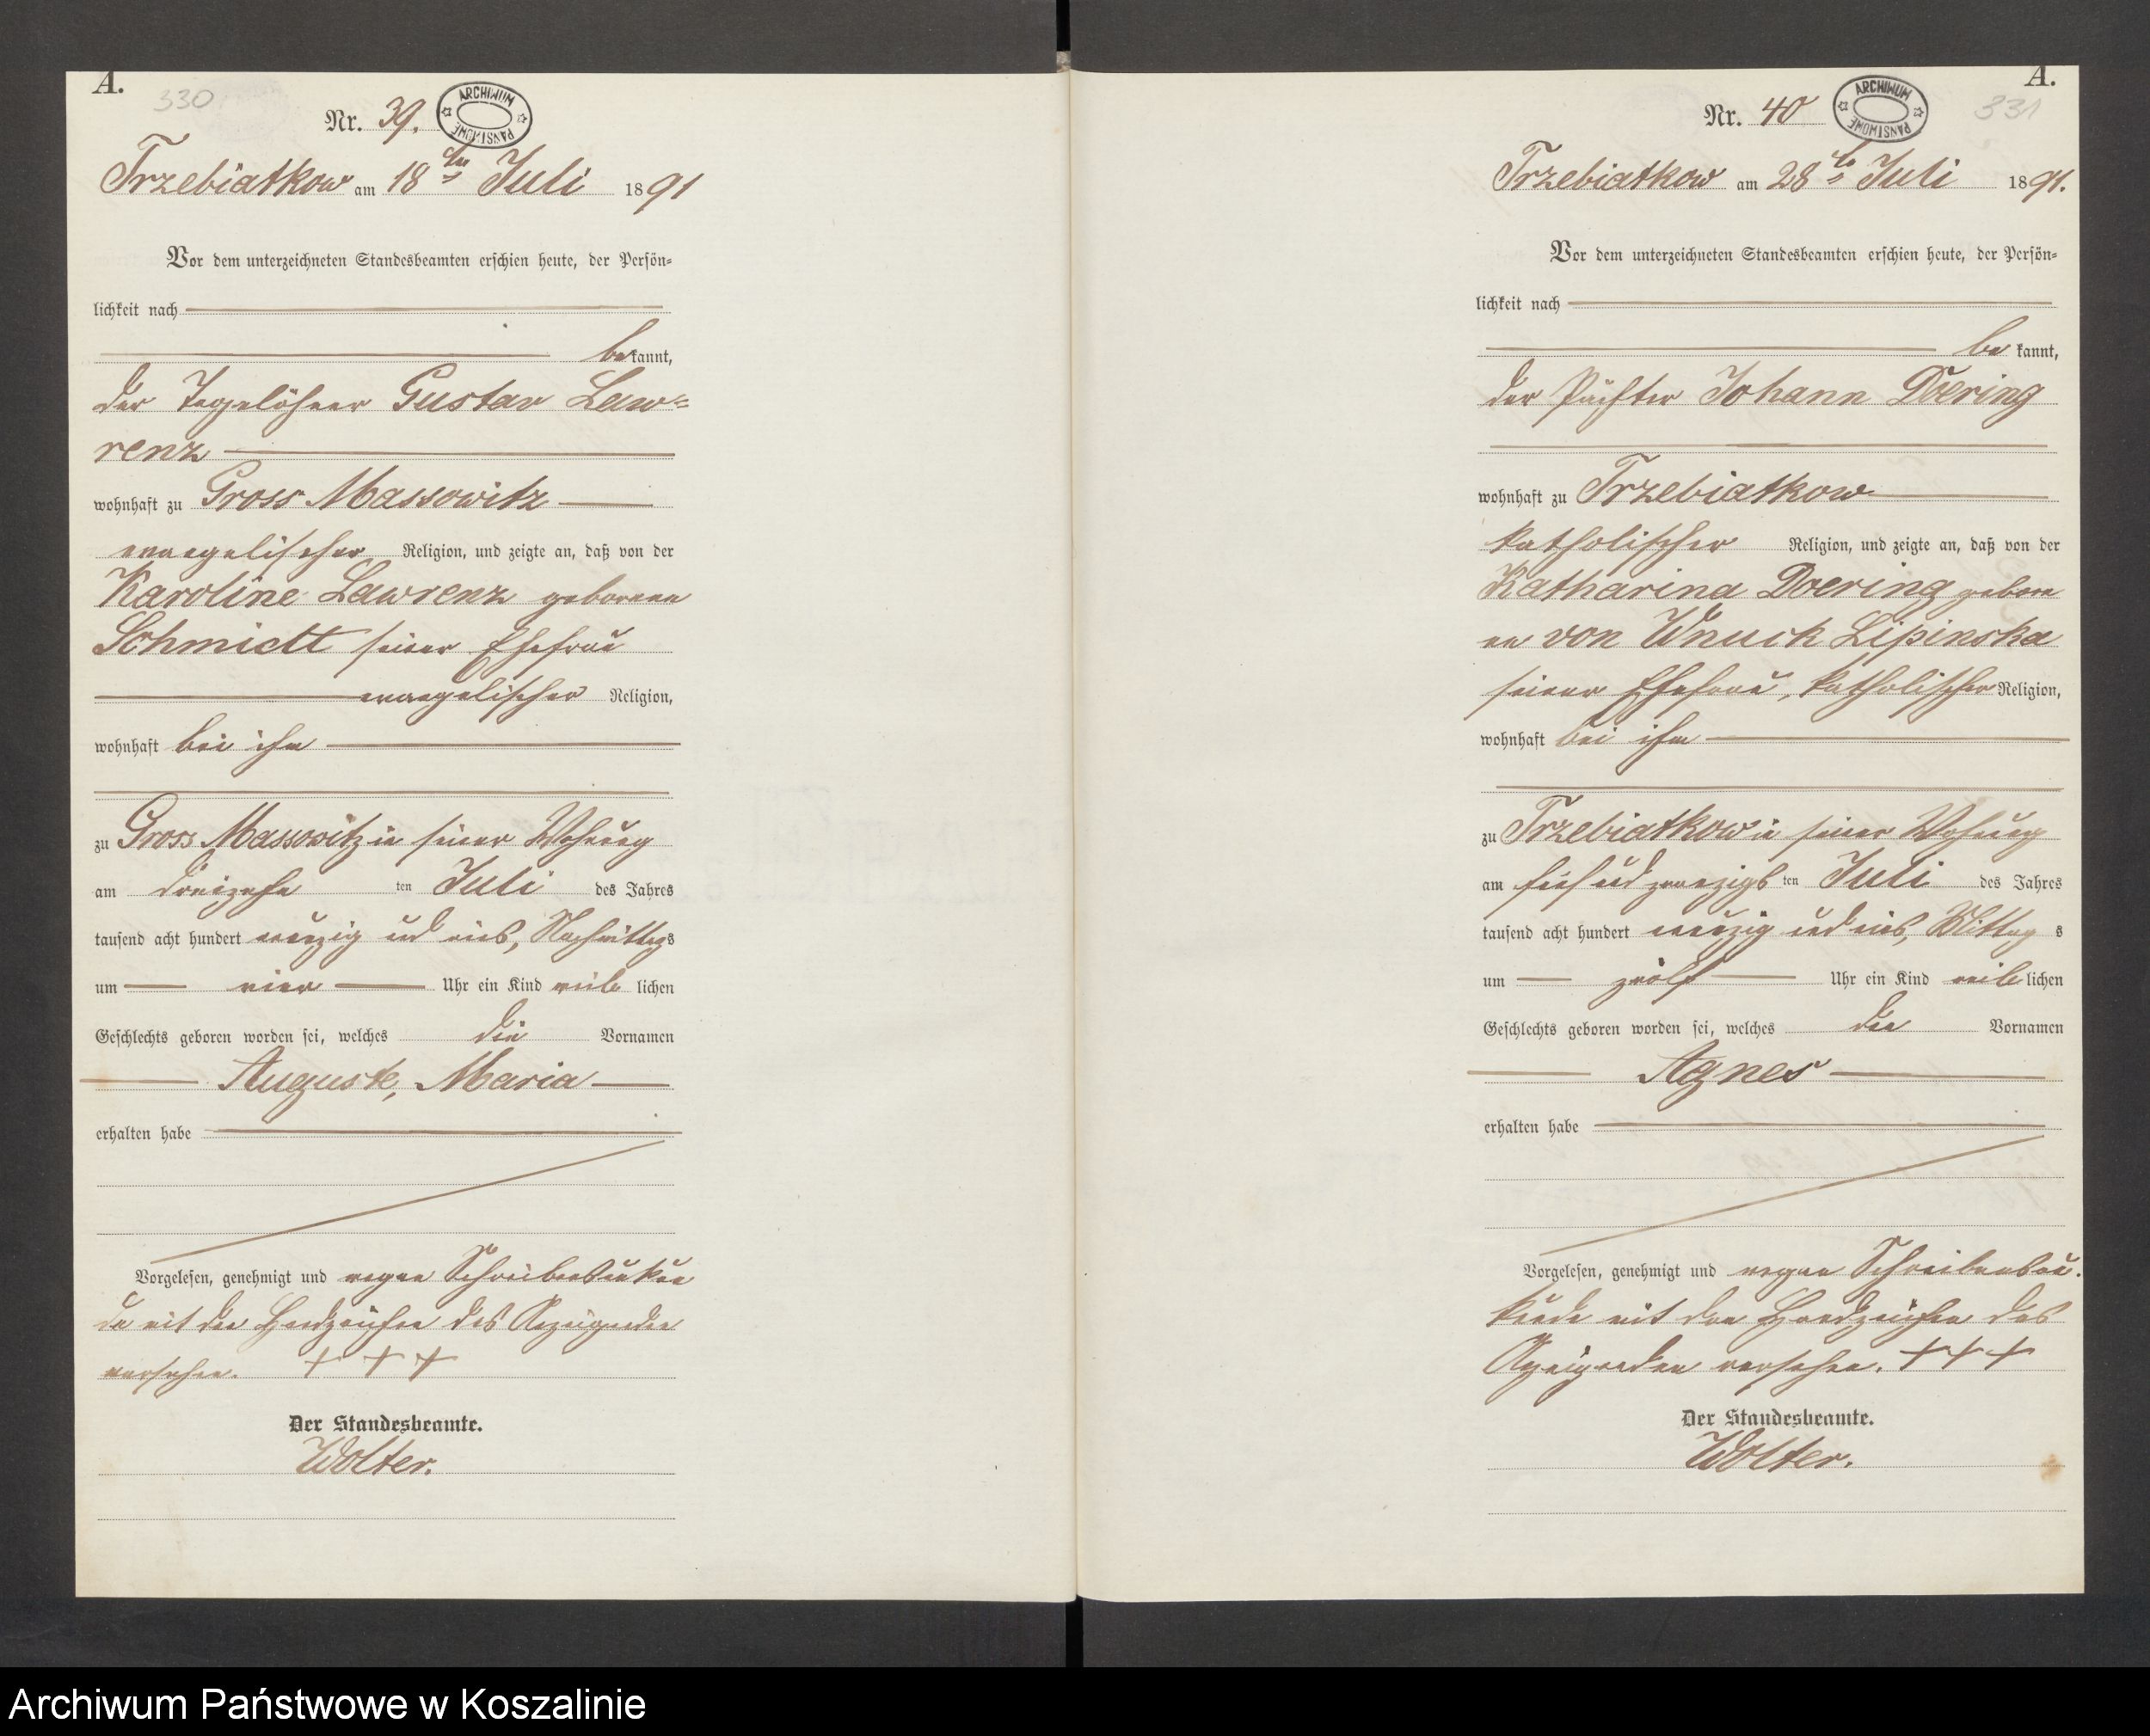 A.
330
Nr. 39.
ARCHIWUM PAŃSTWOWE
Trzebiatkow am 18ten Juli 1891
Vor dem unterzeichneten Standesbeamten erschien heute, der Persön-
lichkeit nach
bekannt,
der Tagelöhner Gustav Law-
renz
wohnhaft zu Gross Massowitz
evangelischer Religion, und zeigte an, daß von der
Karoline Lawrenz geborenen
Schmidt seiner Ehefrau
evangelischer Religion,
wohnhaft bei ihm
zu Gross Massowitz in seiner Wohnung
am dreizehn ten Juli des Jahres
tausend acht hundert neunzig und eins, Nachmittags
um vier Uhr ein Kind weiblichen
Geschlechts geboren worden sei, welches die Vornamen
Auguste, Maria
erhalten habe
Vorgelesen, genehmigt und wegen Schreibensunkun
de mit den Handzeichen des Anzeigenden
versehen. + + +
Der Standesbeamte.
Wolter.
A.
331
Nr. 40
ARCHIWUM PAŃSTWOWE
Trzebiatkow am 28ten Juli 1891.
Vor dem unterzeichneten Standesbeamten erschien heute, der Persön-
lichkeit nach
bekannt,
der Pächter Johann Doering
wohnhaft zu Trzebiatkow
katholischer Religion, und zeigte an, daß von der
Katharina Doering gebore
nen von Wnuck Lipinska
seiner Ehefrau, katholischer Religion,
wohnhaft bei ihm
zu Trzebiatkow in seiner Wohnung
am fünf und zwanzigsten Juli des Jahres
tausend acht hundert neunzig und eins, Mittags
um zwölf Uhr ein Kind weiblichen
Geschlechts geboren worden sei, welches den Vornamen
Agnes
erhalten habe
Vorgelesen, genehmigt und wegen Schreibensun-
kunde mit den Handzeichen des
Anzeigenden versehen. + + +
Der Standesbeamte.
Wolter.
Archiwum Państwowe w Koszalinie